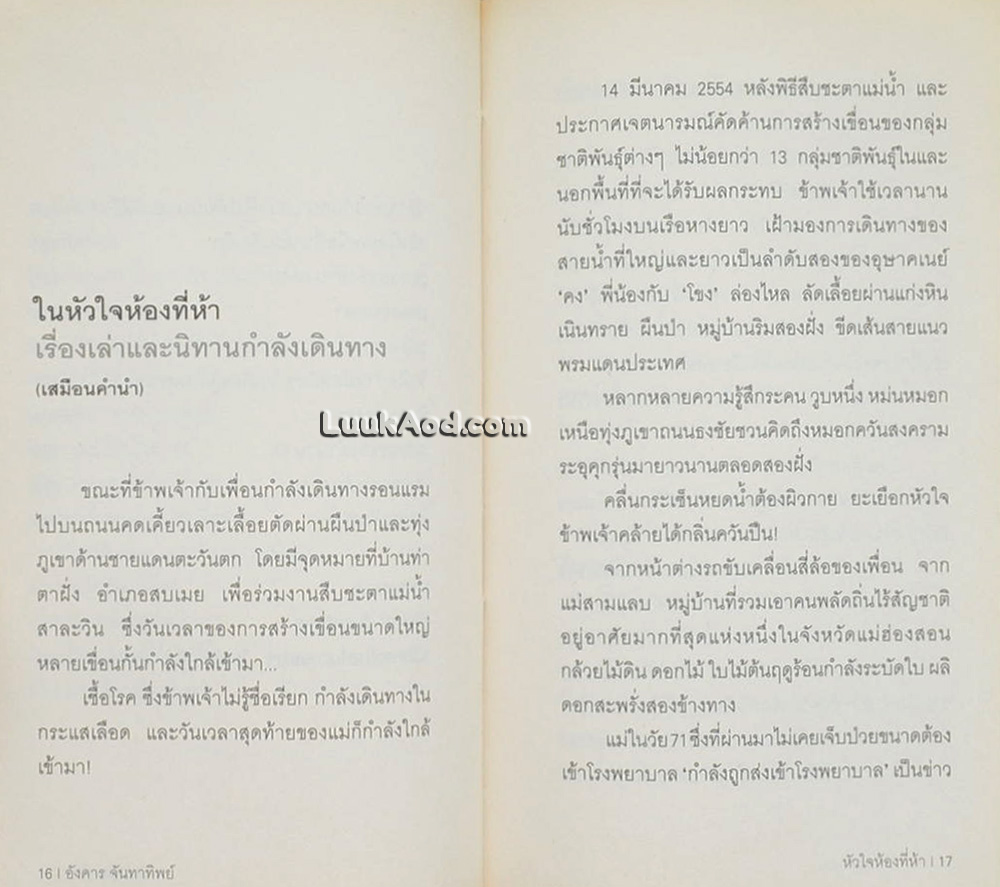 ในหัวใจห้องที่ห้า
เรื่องเล่าและนิทานกำลังเดินทาง
(เสมือนคำนำ)
LuukAod.com
ขณะที่ข้าพเจ้ากับเพื่อนกำลังเดินทางรอนแรม
ไปบนถนนคดเคี้ยวเลาะเลื้อยตัดผ่านผืนป่าและทุ่ง
ภูเขาด้านชายแดนตะวันตก โดยมีจุดหมายที่บ้านท่า
ตาฝั่ง อำเภอสบเมย เพื่อร่วมงานสืบชะตาแม่น้ำ
สาละวิน ซึ่งวันเวลาของการสร้างเขื่อนขนาดใหญ่
หลายเขื่อนกั้นกำลังใกล้เข้ามา...
เชื้อโรค ซึ่งข้าพเจ้าไม่รู้ชื่อเรียก กำลังเดินทางใน
กระแสเลือด และวันเวลาสุดท้ายของแม่ก็กำลังใกล้
เข้ามา!
16 | อังคาร จันทาทิพย์
14 มีนาคม 2554 หลังพิธีสืบชะตาแม่น้ำ และ
ประกาศเจตนารมณ์คัดค้านการสร้างเขื่อนของกลุ่ม
ชาติพันธุ์ต่างๆ ไม่น้อยกว่า 13 กลุ่มชาติพันธุ์ในและ
นอกพื้นที่ที่จะได้รับผลกระทบ ข้าพเจ้าใช้เวลานาน
นับชั่วโมงบนเรือหางยาว เฝ้ามองการเดินทางของ
สายน้ำที่ใหญ่และยาวเป็นลำดับสองของอุษาคเนย์
‘คง’ พี่น้องกับ ‘โขง’ ล่องไหล ลัดเลื้อยผ่านแก่งหิน
เนินทราย ผืนป่า หมู่บ้านริมสองฝั่ง ขีดเส้นสายแนว
พรมแดนประเทศ
หลากหลายความรู้สึกระคน วูบหนึ่ง หม่นหมอก
เหนือทุ่งภูเขาถนนธงชัยชวนคิดถึงหมอกควันสงคราม
ระอุคุกรุ่นมายาวนานตลอดสองฝั่ง
คลื่นกระเซ็นหยดน้ำต้องผิวกาย ยะเยือกหัวใจ
ข้าพเจ้าคล้ายได้กลิ่นควันปืน!
จากหน้าต่างรถขับเคลื่อนสี่ล้อของเพื่อน จาก
แม่สามแลบ หมู่บ้านที่รวมเอาคนพลัดถิ่นไร้สัญชาติ
อยู่อาศัยมากที่สุดแห่งหนึ่งในจังหวัดแม่ฮ่องสอน
กล้วยไม้ดิน ดอกไม้ ใบไม้ต้นฤดูร้อนกำลังระบัดใบ ผลิ
ดอกสะพรั่งสองข้างทาง
แม่ในวัย 71 ซึ่งที่ผ่านมาไม่เคยเจ็บป่วยขนาดต้อง
เข้าโรงพยาบาล ‘กำลังถูกส่งเข้าโรงพยาบาล’ เป็นข่าว
หัวใจห้องที่ห้า | 17